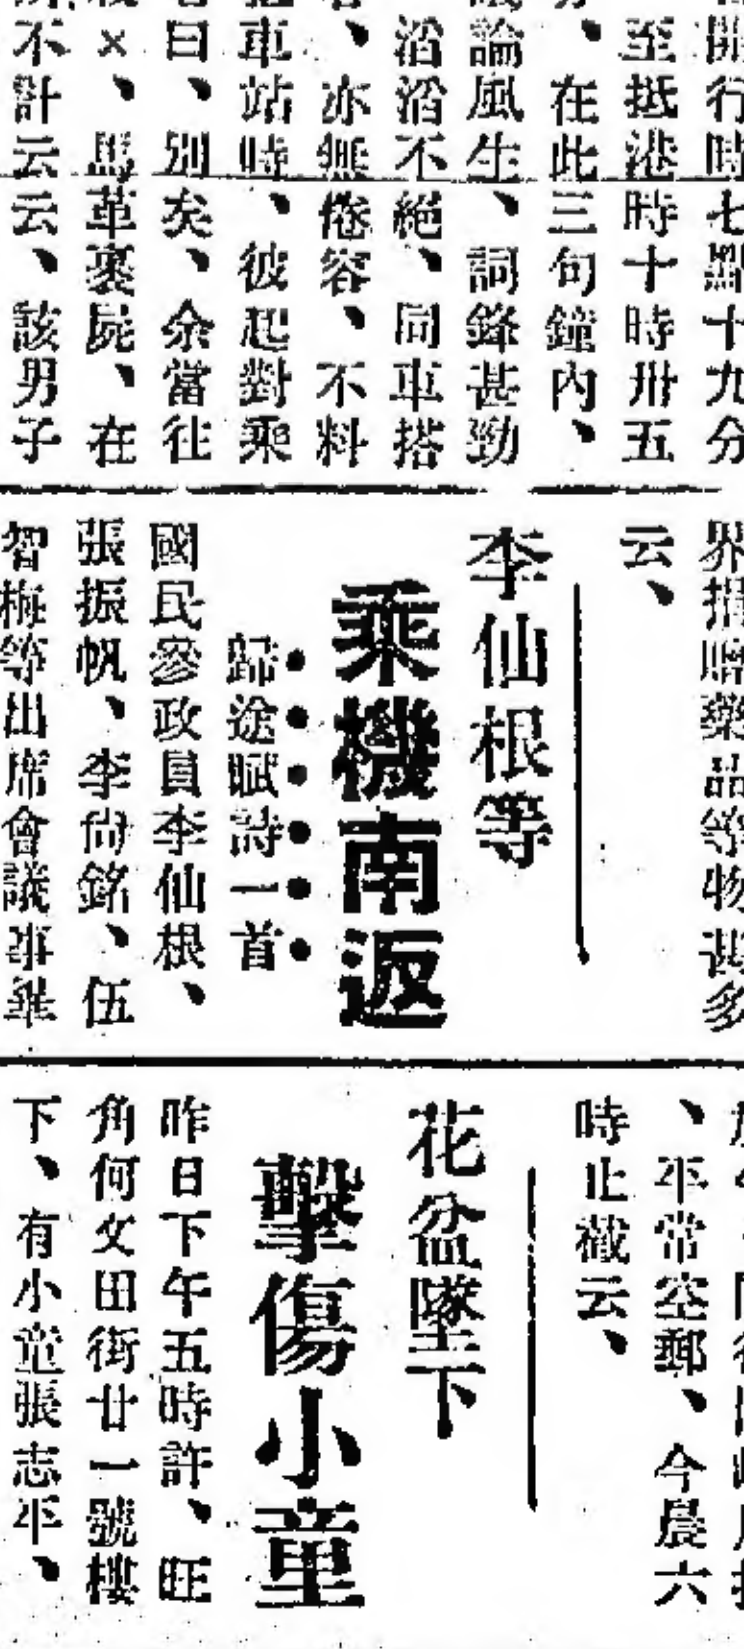 開行時七點十九分
至抵港時十時卅五
、在此三句鐘內、
論風生、詞鋒甚勁
滔滔不絕、同車搭
、亦無倦容、不料
車站時、彼起對乘
曰、別矣、余當往
×、馬革裹屍、在
不計云云、該男子
界捐贈藥品等物甚多
云、
李仙根等
乘機南返
歸途賦詩一首
國民參政員李仙根、
張振帆、李尙銘、伍
智梅等出席會議事畢
、平常空郵、今晨六
時止截云、
花盆墜下
擊傷小童
昨日下午五時許、旺
角何文田街廿一號樓
下、有小童張志平、